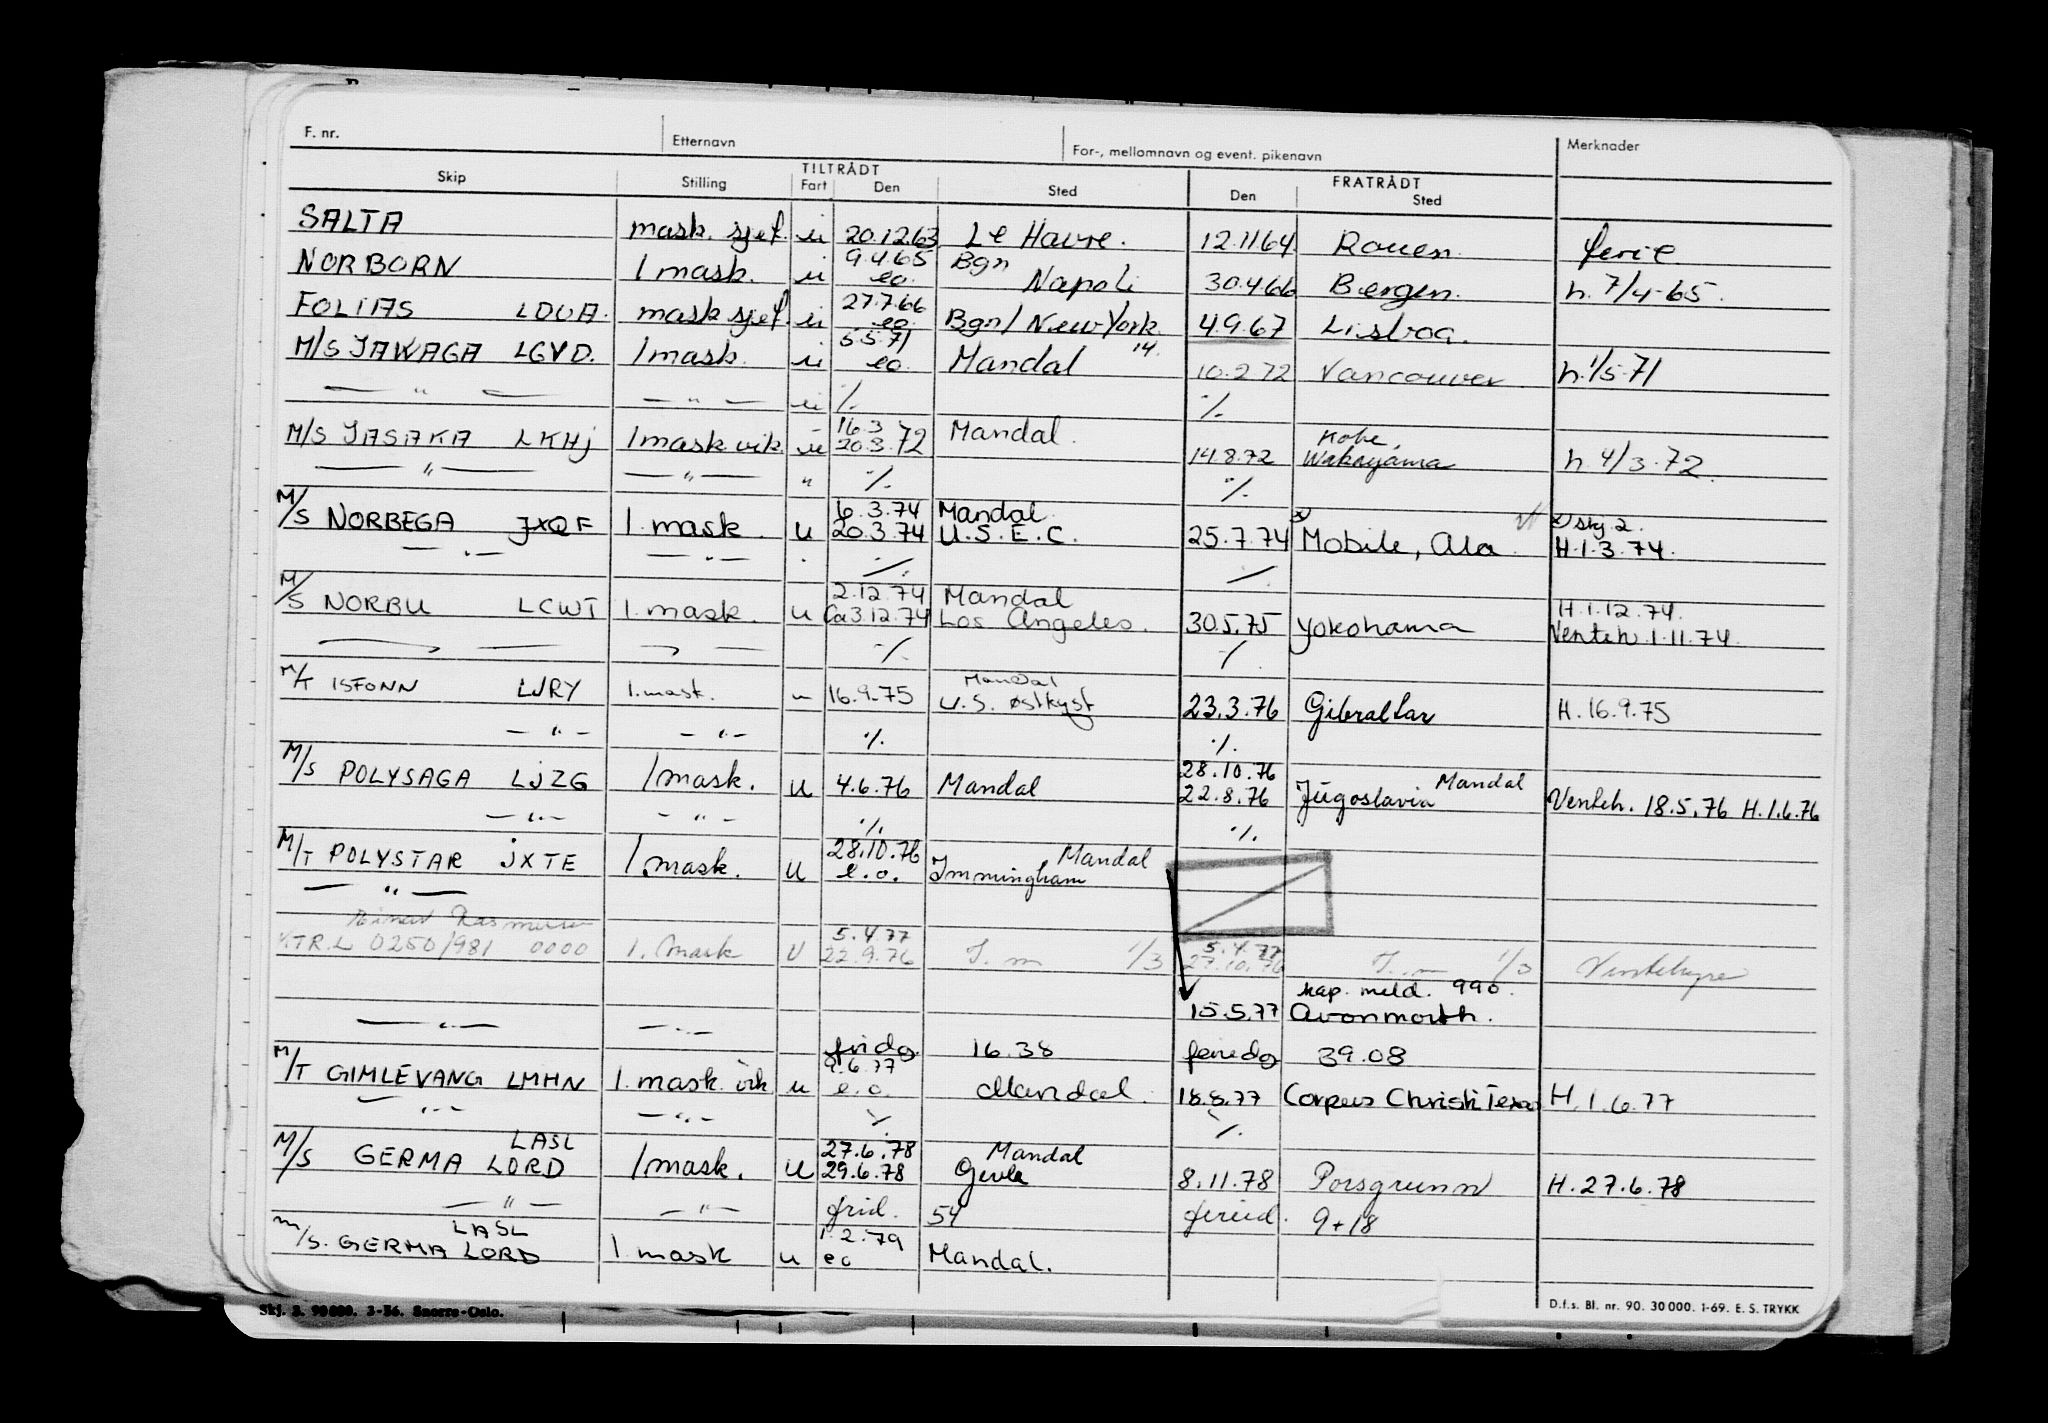 F. nr. Etternavn For-, mellomnavn og event. pikenavn Merknader
TILTRÅDT FRATRÅDT
Skip Stilling Fart Den Sted Den Sted
SALTA mask. sjef. u 20.12.63 Le Havre. 12.11.64 Rouen ferie
9.4.65 Bgn
NORBORN 1 mask. u eo. Napoli 30.4.66 Bergen. h. 7/4-65.
27.7.66
FOLIAS LDUA. mask sjef. u eo. Bgn/New York 4.9.67 Lisboa.
5.5.71 14.
M/S JAWAGA LGVD. 1 mask. u eo. Mandal 10.2.72 Vancouver h. 1/5-71
— " — — " — u ·/. ·/.
16.3
M/S JASAKA LKHJ 1 mask vik. u 20.3.72 Mandal. 14.8.72 Kobe, Wakayama h. 4/3.72
— " — — " — " ·/. ·/.
16.3.74 Mandal. x) x) skj 2.
M/S NORBEGA JXQF 1. mask. u 20.3.74 U.S.E.C. 25.7.74 Mobile, Ala. H.1.3.74.
— " — — " — ·/. ·/.
2.12.74 Mandal H.1.12.74.
M/S NORBU LCWT 1. mask. u Ca 3.12.74 Los Angeles. 30.5.75 Yokohama Venteh 1.11.74.
·/. ·/.
Mandal
M/T ISFONN LJRY 1. mask. u 16.9.75 U.S. østkyst 23.3.76 Gibraltar H. 16.9.75
— " — — " — ·/. ·/.
28.10.76 Mandal
M/S POLYSAGA LJZG 1 mask. u 4.6.76 Mandal 22.8.76 Jugoslavia Venteh. 18.5.76 H.1.6.76
— " — — " — ·/. ·/.
28.10.76 Mandal
M/T POLYSTAR JXTE 1. mask. u e.o. Immingham
— " —
Einar Rasmussen 5.4.77 5.4.77
KTR.L 0250/981 0000 1. mask U 22.9.76 1/3 27.10.76 1/3 Ventehyre
kap. meld. 990.
15.5.77 Avonmouth.
— " — — " —
frida 16.38 feireda 39.08
9.6.77
M/T GIMLEVANG LMHN 1. mask. vik u e.o. Mandal. 18.8.77 Corpus Christi Texas H. 1.6.77
— " — — " — ·/. ·/.
LASL 27.6.78 Mandal
M/S GERMA LORD 1 mask. u 29.6.78 8.11.78 Porsgrunn H. 27.6.78
— " — — " — frid. 54 feried. 9+18
LASL 1.2.79
M/S. GERMA LORD 1. mask u eo Mandal.
Skj. 3. 90 000. 3-56. Snorre-Oslo. D.f.s. Bl. nr. 90. 30 000. 1-69. E. S. TRYKK